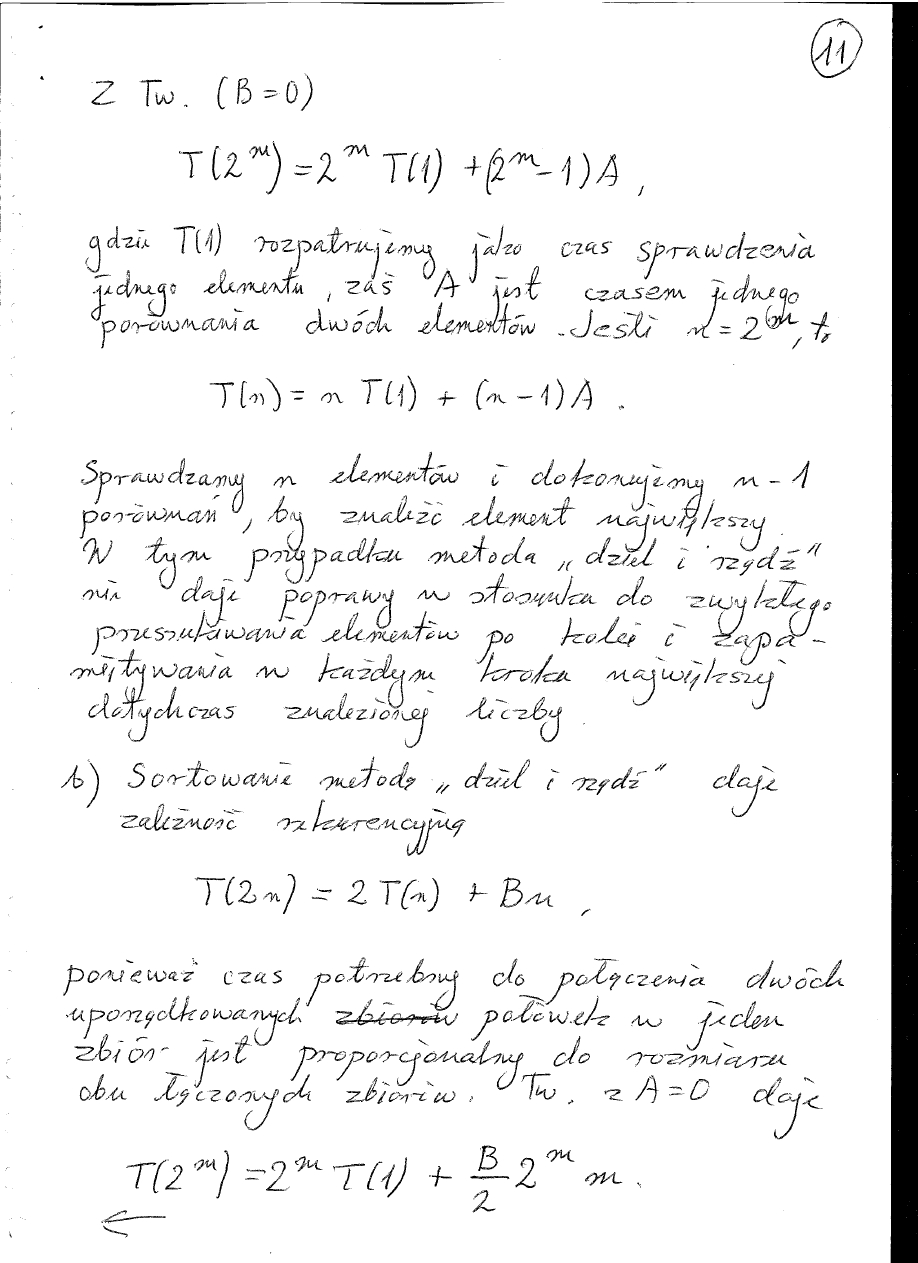 11
Z Tw. (B=0)
T(2^m) = 2^m T(1) + (2^m - 1)A,
gdzie T(1) rozpatrujemy jako czas sprawdzenia
jednego elementu, zaś A jest czasem jednego
porównania dwóch elementów. Jeśli n = 2^m, to
T(n) = n T(1) + (n-1)A.
Sprawdzamy n elementów i dokonujemy n-1
porównań, by znaleźć element największy.
W tym przypadku metoda „dziel i rządź"
nie daje poprawy w stosunku do zwykłego
przeszukiwania elementów po kolei i zapa-
miętywania w każdym kroku największej
dotychczas znalezionej liczby.
b) Sortowanie metodą „dziel i rządź" daje
zależność rekurencyjną
T(2n) = 2T(n) + Bn,
ponieważ czas potrzebny do połączenia dwóch
uporządkowanych zbiorów połówek w jeden
zbiór jest proporcjonalny do rozmiaru
obu łączonych zbiorów. Tw. z A=0 daje
T(2^m) = 2^m T(1) + B/2 2^m m.
←